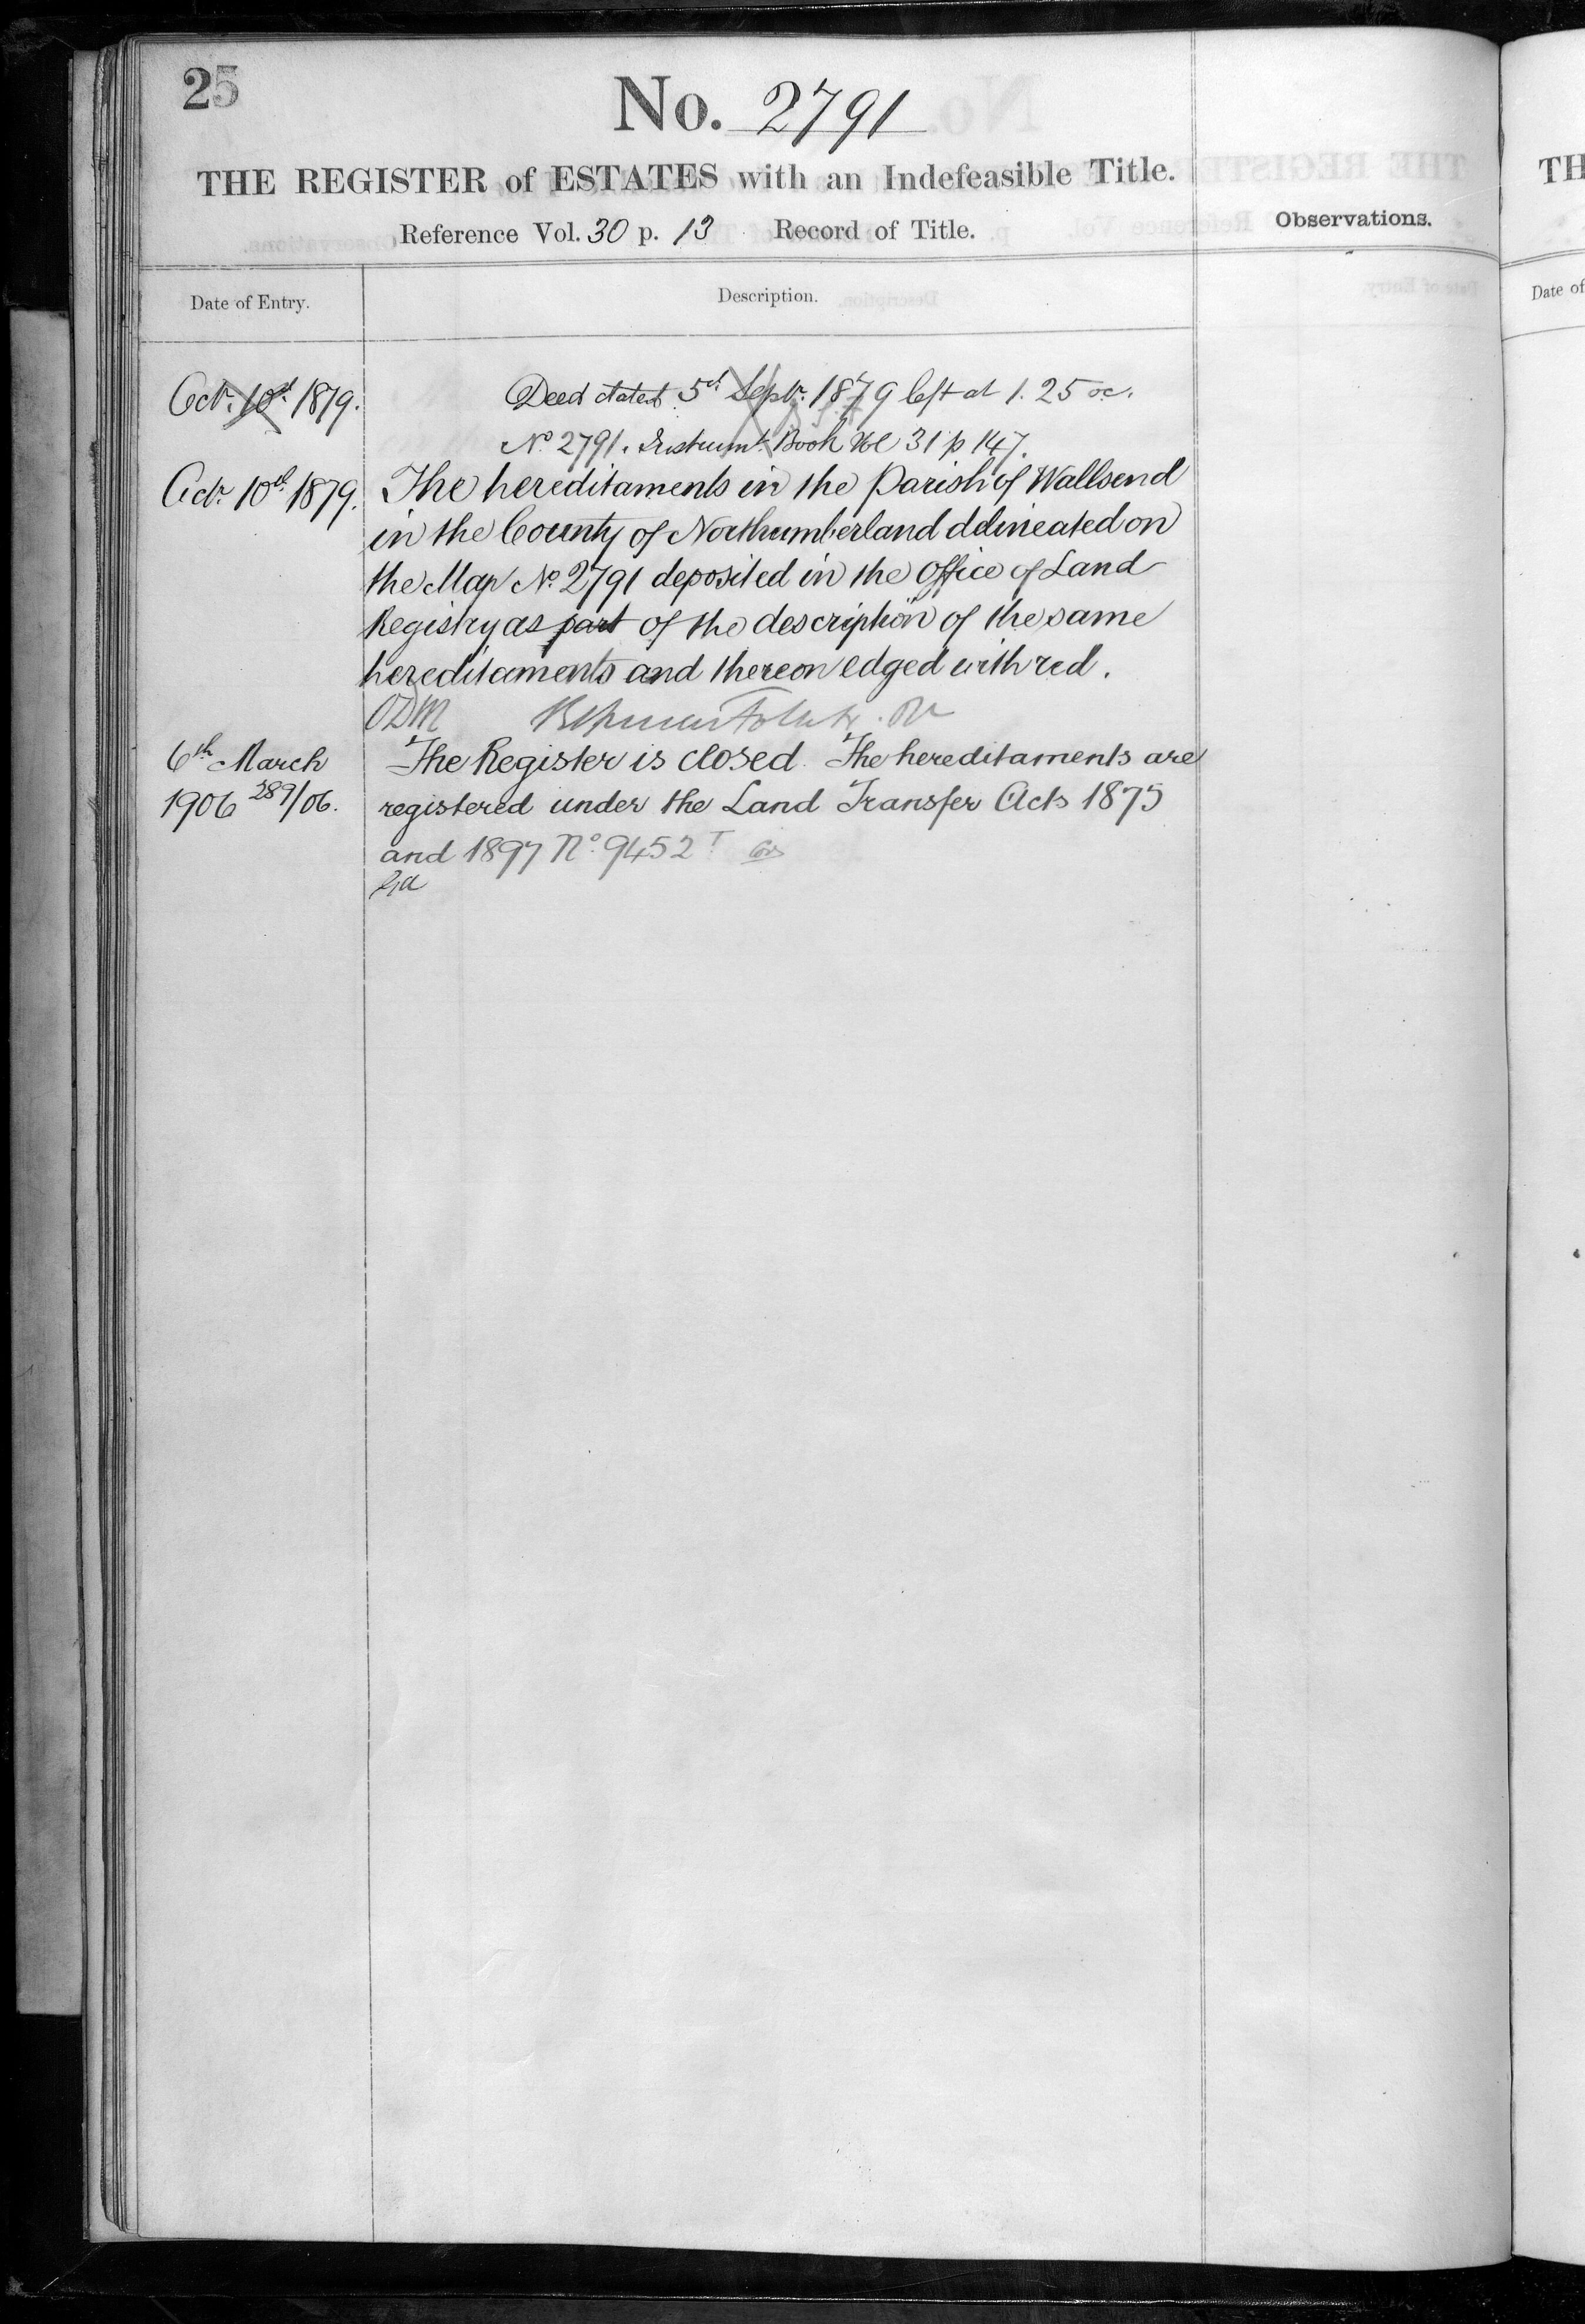 25
No. 2791
THE REGISTER of ESTATES with an Indefeasible Title.
Reference Vol. 30 p. 13 Record of Title.
Observations.
Date of Entry.
Description.
Octr. 10th 1879.
Deed dated 5th Septr. 1879 left at 1.25 oc.
No 2791. Instrumt. Book Vol 31 p 147.
Octr. 10th 1879.
The hereditaments in the Parish of Wallsend
in the County of Northumberland delineated on
the Map No. 2791 deposited in the Office of Land
Registry as part of the description of the same
hereditaments and thereon edged with red.
ODM
6th March
1906 289/06.
The Register is closed. The hereditaments are
registered under the Land Transfer Acts 1875
and 1897 No 9452 T
TH
Date of